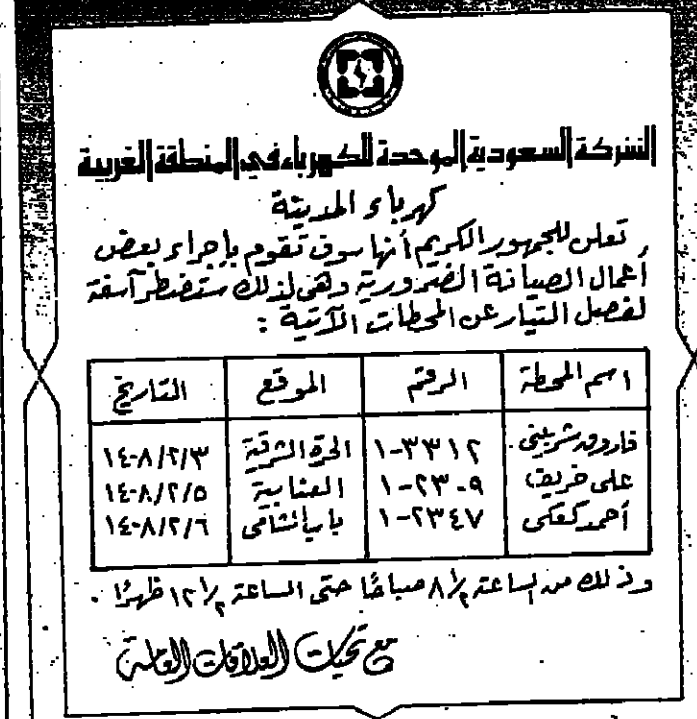 الشركة السعودية الموحدة للكهرباء في المنطقة الغربية
كهرباء المدينة
تعلن للجمهور الكريم أنها سوف تقوم بإجراء بعض
أعمال الصيانة الضرورية وهى لذلك ستضطر آسفة
لفصل التيار عن المحطات الآتية :
اسم المحطة الرقم الموقع التاريخ
فاروق شربينى ١-٣٣١٢ الحرة الشرقية ١٤٠٨/٢/٣
على خريف ١-٢٣٠٩ العنابية ١٤٠٨/٢/٥
أحمد كعكى ١-٢٣٤٧ باب الشامى ١٤٠٨/٢/٦
وذلك من الساعة ٨/٢١ صباحًا حتى الساعة ١٢/٢١ ظهرًا .
مع تحيات العلاقات العامة